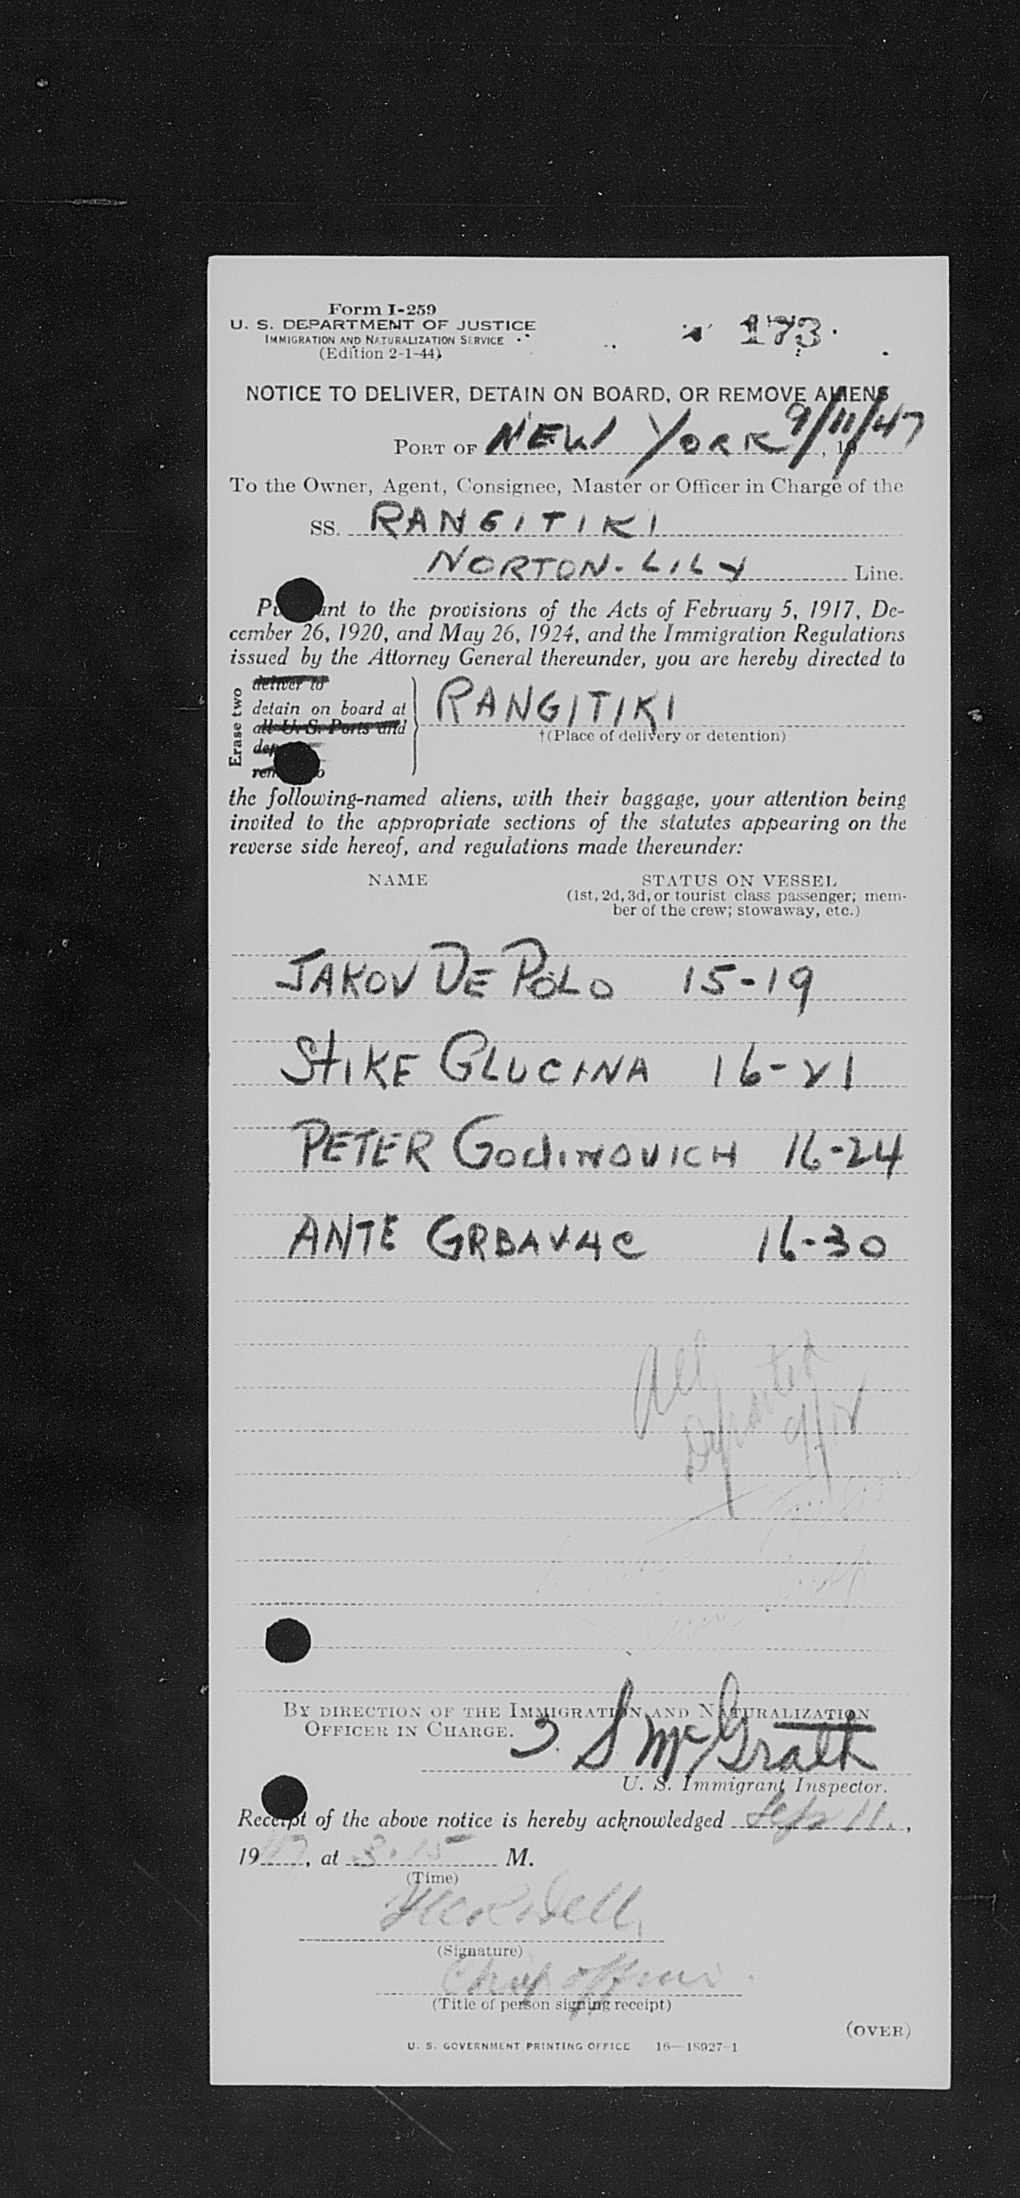 Form I-259
U. S. DEPARTMENT OF JUSTICE
IMMIGRATION AND NATURALIZATION SERVICE
(Edition 2-1-44)
173
NOTICE TO DELIVER, DETAIN ON BOARD, OR REMOVE ALIENS
PORT OF NEW YORK 9/11/47, 19
To the Owner, Agent, Consignee, Master or Officer in Charge of the
SS. RANGITIKI
NORTON-LILY Line.
Pursuant to the provisions of the Acts of February 5, 1917, De-
cember 26, 1920, and May 26, 1924, and the Immigration Regulations
issued by the Attorney General thereunder, you are hereby directed to
Erase two
deliver to
detain on board at
all U. S. Ports and
RANGITIKI
†(Place of delivery or detention)
the following-named aliens, with their baggage, your attention being
invited to the appropriate sections of the statutes appearing on the
reverse side hereof, and regulations made thereunder:
NAME STATUS ON VESSEL
(1st, 2d, 3d, or tourist class passenger; mem-
ber of the crew; stowaway, etc.)
JAKOV DE POLO 15-19
STIKE GLUCINA 16-21
PETER GODINOVICH 16-24
ANTE GRBAVAC 16-30
All
Departed
9/12
BY DIRECTION OF THE IMMIGRATION AND NATURALIZATION
OFFICER IN CHARGE.
S McGrath
U. S. Immigrant Inspector.
Receipt of the above notice is hereby acknowledged Sep 11.,
1947, at 3.15 M.
(Time)
(Signature)
(Title of person signing receipt)
(OVER)
U. S. GOVERNMENT PRINTING OFFICE 16—18927-1